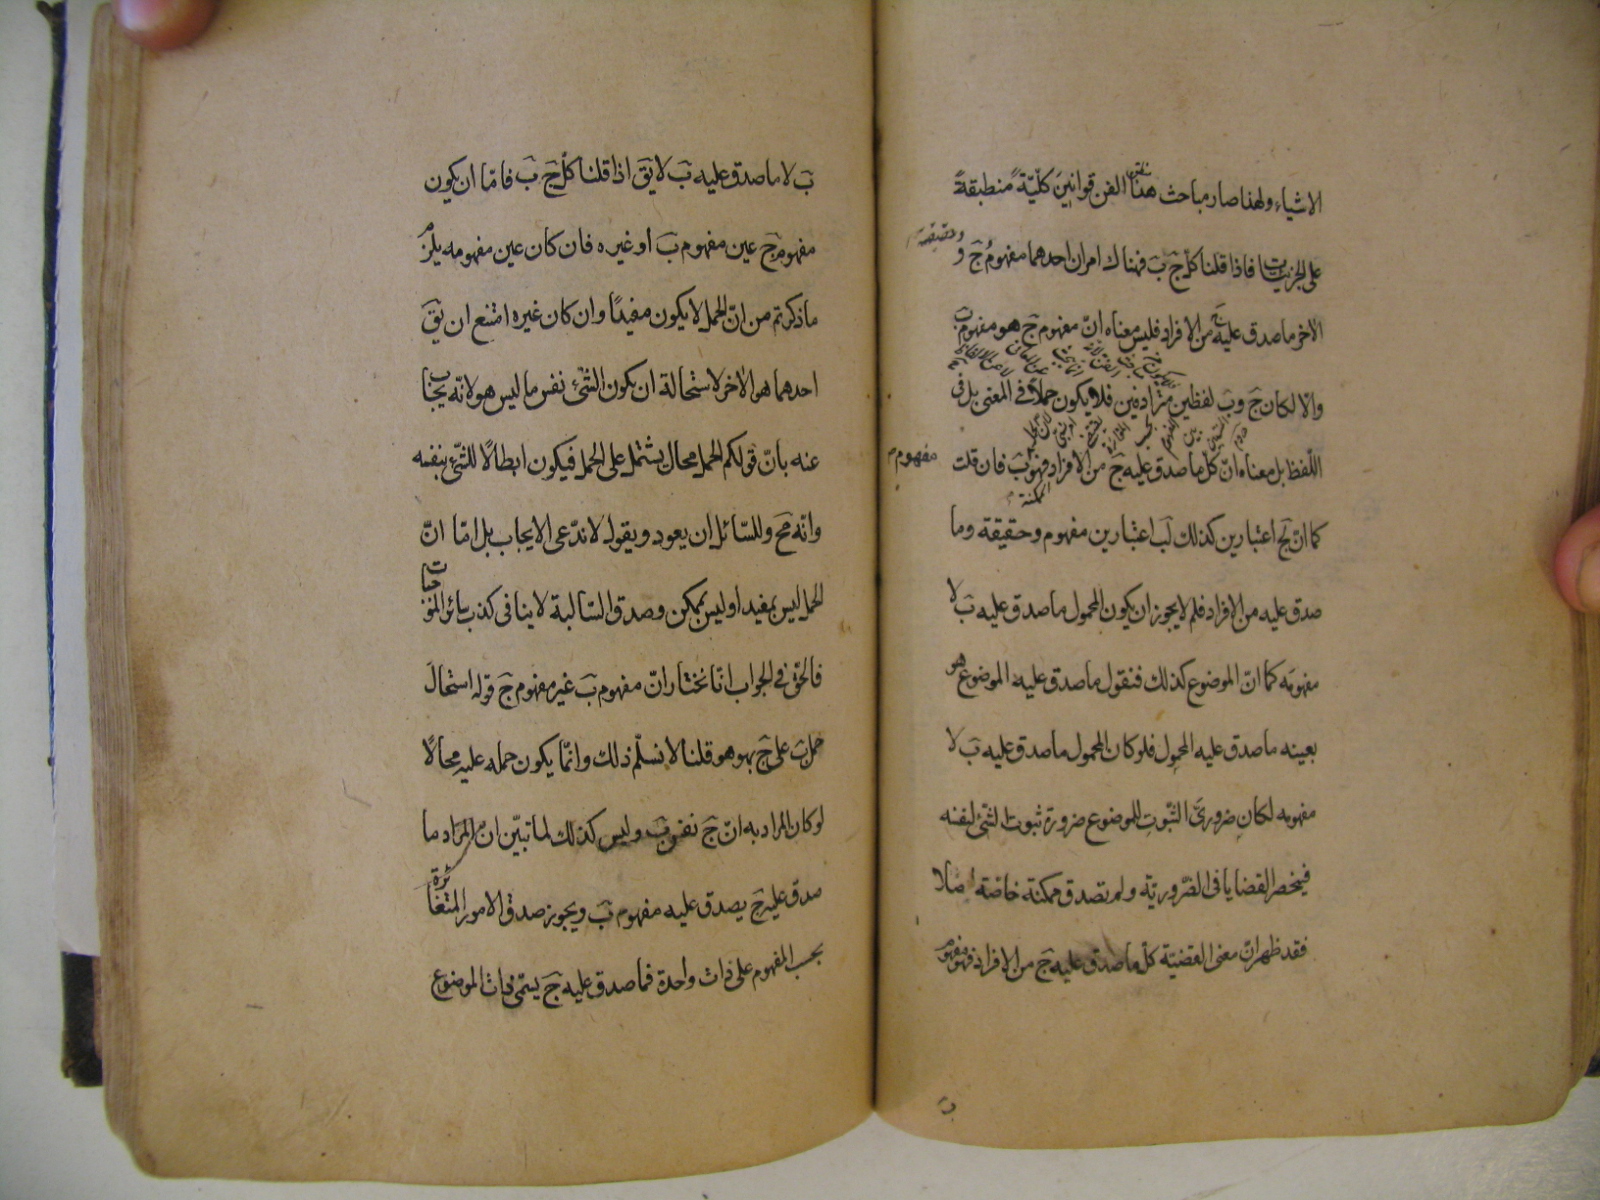 الاشياء ولهذا صار مباحث هذا الفن قوانين كلّيّة منطبقة
على الجزئيات فاذا قلنا كلّ جَ بَ فهناك امران احدهما مفهوم جَ و
وحقيقته
الاخر ما صدق عليه جَ من الافراد فليس معناه انّ مفهوم جَ هو مفهوم بَ
والّا لكان جَ وبَ لفظين مترادفين فلا يكون حملاً في المعنى بل في
اللّفظ بل معناه انّ كلّ ما صدق عليه جَ من الافراد فهو بَ فان قلت
مفهوم
كما انّ لجَ اعتبارين كذلك لبَ اعتبارين مفهوم وحقيقة وما
صدق عليه من الافراد فلم لا يجوز ان يكون المحمول ما صدق عليه بَ لا
مفهومه كما انّ الموضوع كذلك فنقول ما صدق عليه الموضوع هو
بعينه ما صدق عليه المحمول فلو كان المحمول ما صدق عليه بَ لا
مفهومه لكان ضروريَّ الثبوت للموضوع ضرورة ثبوت الشئ لنفسه
فينحصر القضايا في الضّروريّة ولم تصدق ممكنة خاصّة اصلا
فقد ظهر انّ معنى القضيّة كلّ ما صدق عليه جَ من الافراد فهو مفهوم
بَ لا ما صدق عليه بَ لا يقَ اذا قلنا كلّ جَ بَ فامّا ان يكون
مفهوم جَ عين مفهوم بَ او غيره فان كان عين مفهومه يلزم
ما ذكرتم من انّ الحمل لا يكون مفيدًا وان كان غيره امتنع ان يقَ
احدهما هو الاخر لاستحالة ان يكون الشئ نفس ما ليس هو لانّه يجاب
عنه بانّ قولكم الحمل محال يشتمل على الحمل فيكون ابطالًا للشّئ بنفسه
وانّه مح وللسّائل ان يعود ويقول لا ندّعى الايجاب بل امّا انّ
الحمل ليس بمفيد او ليس بممكن وصدق السّالبة لا ينافى كذب سائر الموجبات
فالحقّ في الجواب انّا نختار انّ مفهوم بَ غير مفهوم جَ قوله استحال
حمل بَ على جَ بهو هو قلنا لا نسلّم ذلك وانّما يكون حمله عليه محالًا
لو كان المراد به انّ جَ نفس بَ وليس كذلك لما تبيّن انّ المراد ما
صدق عليه جَ يصدق عليه مفهوم بَ ويجوز صدق الامور المتغايرة
بحسب المفهوم على ذات واحدة فما صدق عليه جَ يسمّى ذات الموضوع